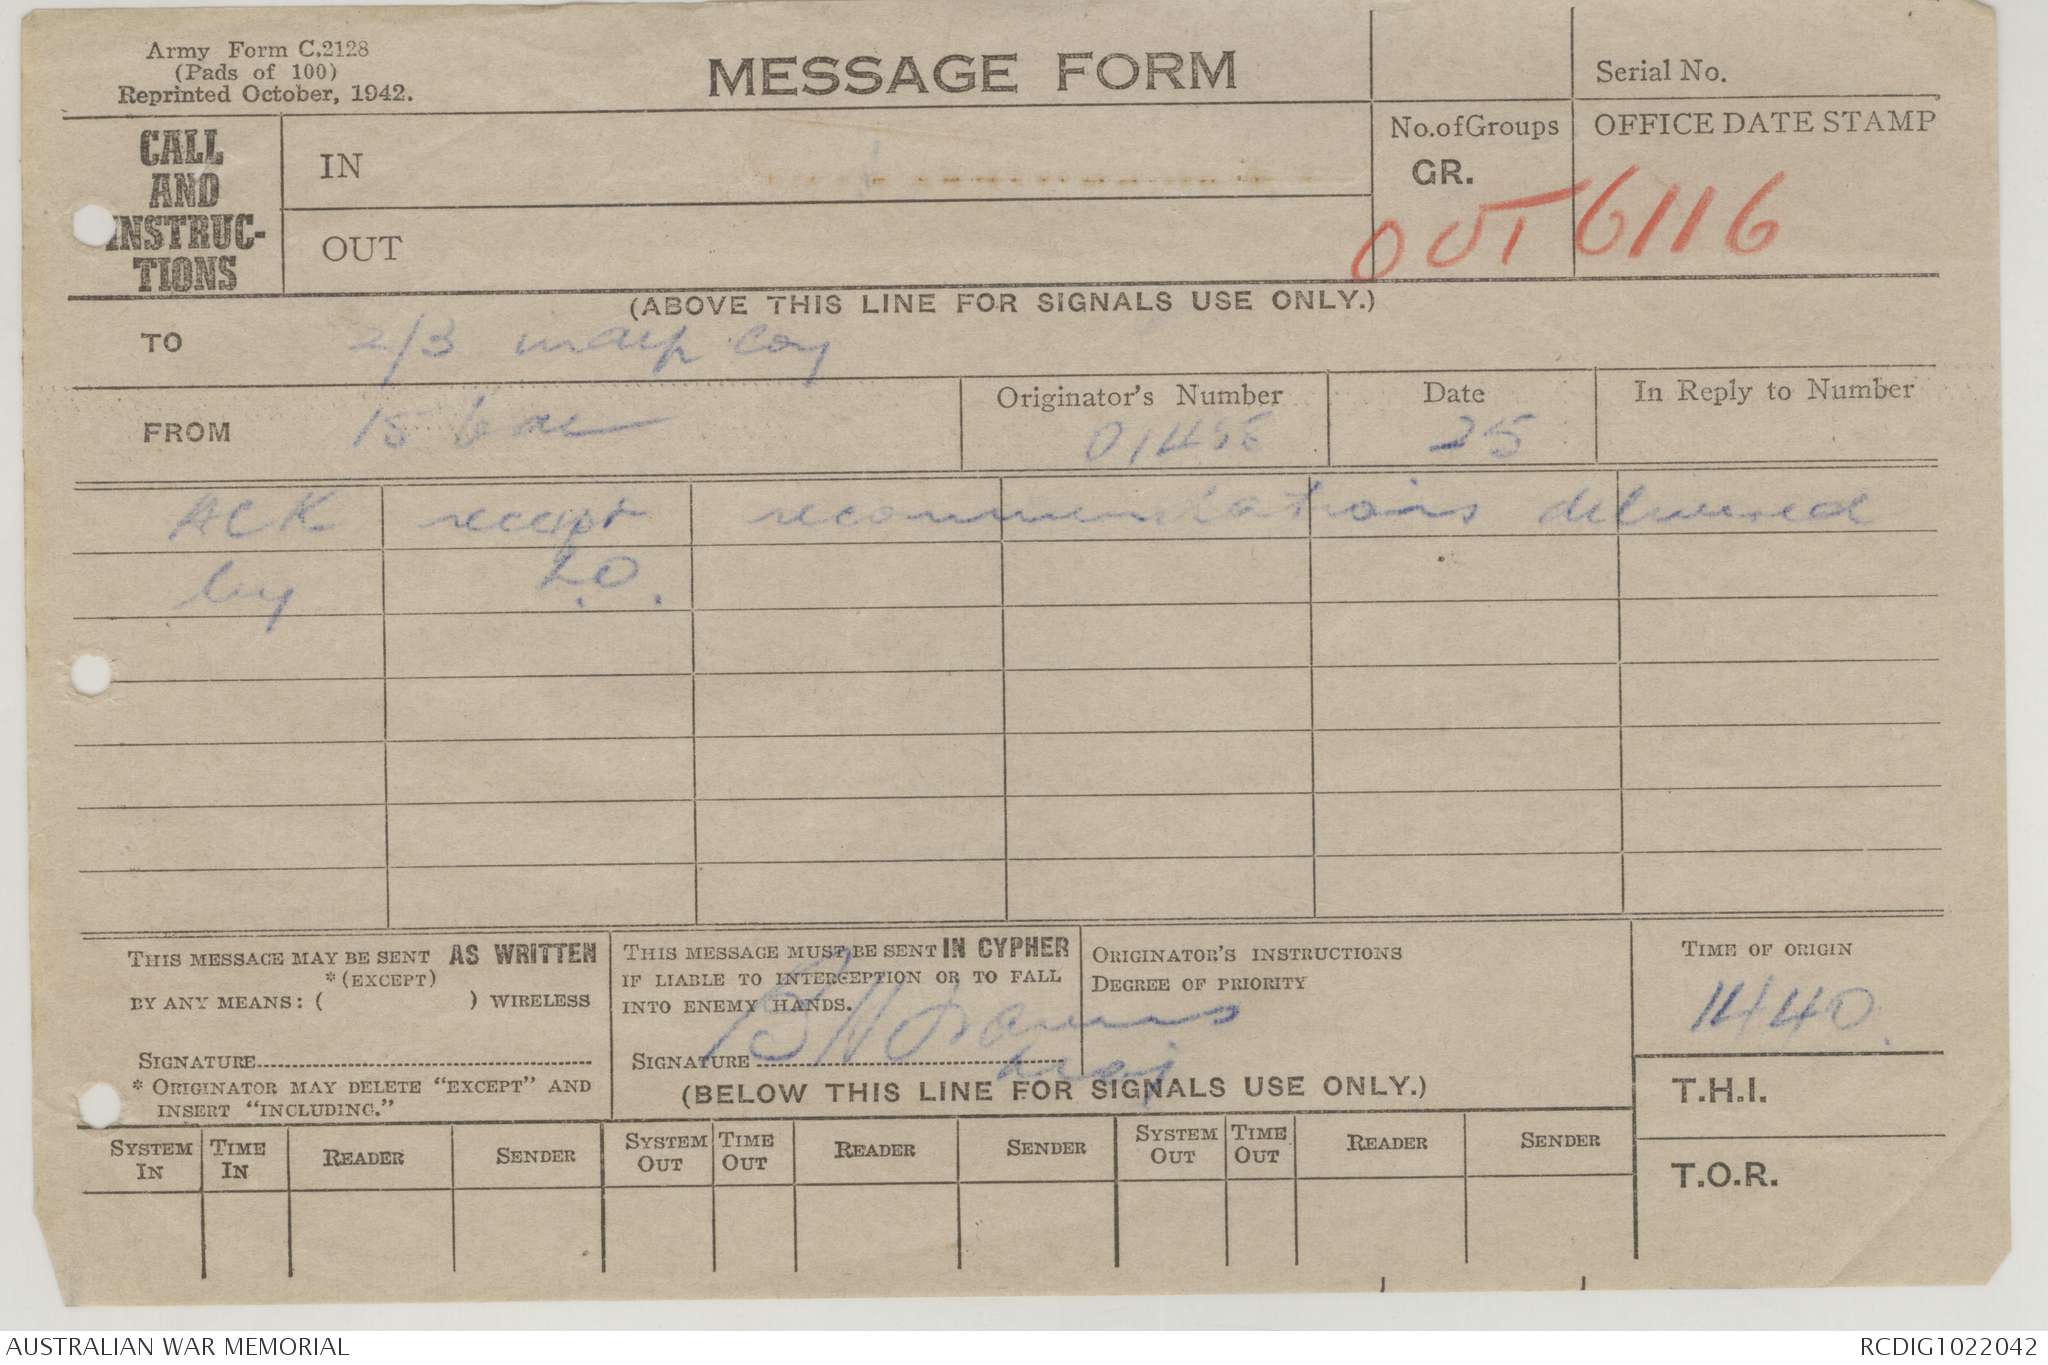 Army Form C.2128
(Pads of 100)
Reprinted October, 1942.
MESSAGE FORM
Serial No.
CALL AND INSTRUC-TIONS
IN
OUT
No. of Groups
GR.
OFFICE DATE STAMP
OUT 6116
(ABOVE THIS LINE FOR SIGNALS USE ONLY.)
TO 2/3 coy
FROM 15 bde
Originator's Number
Date
In Reply to Number
25
ACK receipt recommendations delivered
by L.O.
THIS MESSAGE MAY BE SENT AS WRITTEN
*(EXCEPT)
BY ANY MEANS: ( ) WIRELESS
SIGNATURE
* ORIGINATOR MAY DELETE "EXCEPT" AND
INSERT "INCLUDING."
THIS MESSAGE MUST BE SENT IN CYPHER
IF LIABLE TO INTERCEPTION OR TO FALL
INTO ENEMY HANDS.
SIGNATURE
Maj
ORIGINATOR'S INSTRUCTIONS
DEGREE OF PRIORITY
TIME OF ORIGIN
1440.
(BELOW THIS LINE FOR SIGNALS USE ONLY.)
T.H.I.
T.O.R.
SYSTEM IN
TIME IN
READER
SENDER
SYSTEM OUT
TIME OUT
READER
SENDER
SYSTEM OUT
TIME OUT
READER
SENDER
AUSTRALIAN WAR MEMORIAL
RCDIG1022042